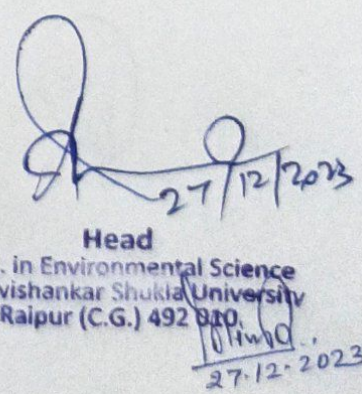 27/12/2023
Head
. in Environmental Science
vishankar Shukla University
Raipur (C.G.) 492 010.
27.12.2023